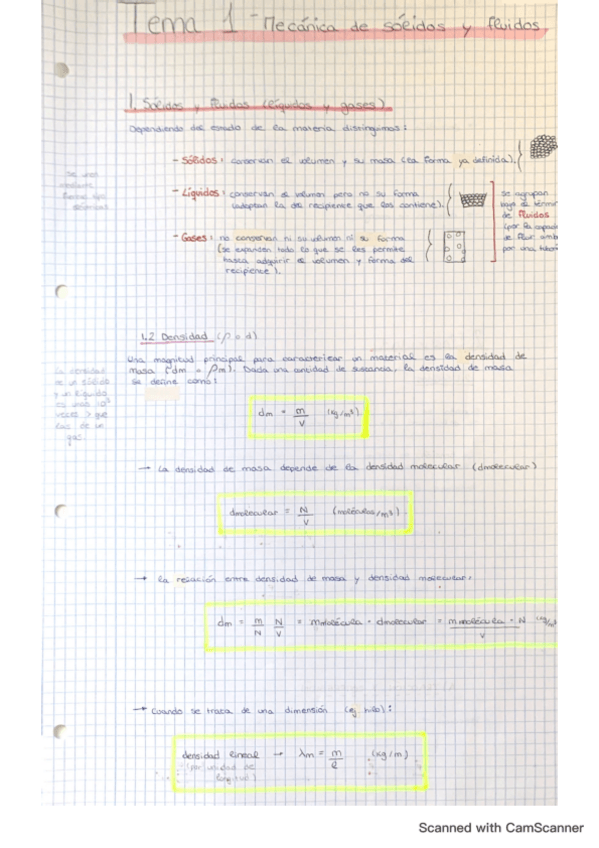 Tema 1 - Mecánica de sólidos y fluidos
1. Sólidos y fluidos (líquidos y gases)
Dependiendo del estado de la materia distinguimos:
- Sólidos: conservan el volumen y su masa (la forma ya definida).
- Líquidos: conservan el volumen pero no su forma
(adoptan la del recipiente que los contiene).
- Gases: no conservan ni su volumen ni su forma
(se expanden todo lo que se les permite
hasta adquirir el volumen y forma del
recipiente).
se agrupan
bajo el
de fluidos
(por la
de fluir
por una
1.2 Densidad (ρ o d)
Una magnitud principal para caracterizar un material es la densidad de
masa (dm = ρm). Dada una cantidad de sustancia, la densidad de masa
se define como:
La densidad
de un sólido
y un líquido
es unas 10³
veces > que
las de un
gas.
dm = m/V (kg/m³)
→ La densidad de masa depende de la densidad molecular (dmolecular)
dmolecular = N/V (moléculas/m³)
→ la relación entre densidad de masa y densidad molecular:
dm = m/N N/V = mmolécula · dmolecular = mmolécula · N/V
→ Cuando se trata de una dimensión (ej. hilo):
densidad lineal → λm = m/l (kg/m)
(por unidad de
longitud)
Scanned with CamScanner